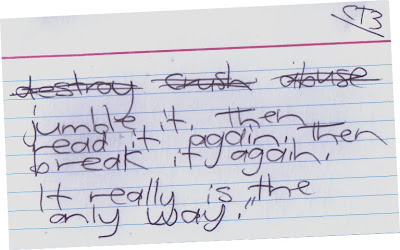 CT3
destroy crush abuse
jumble it, then
read it again, then
break it again.
It really is "the
only way."